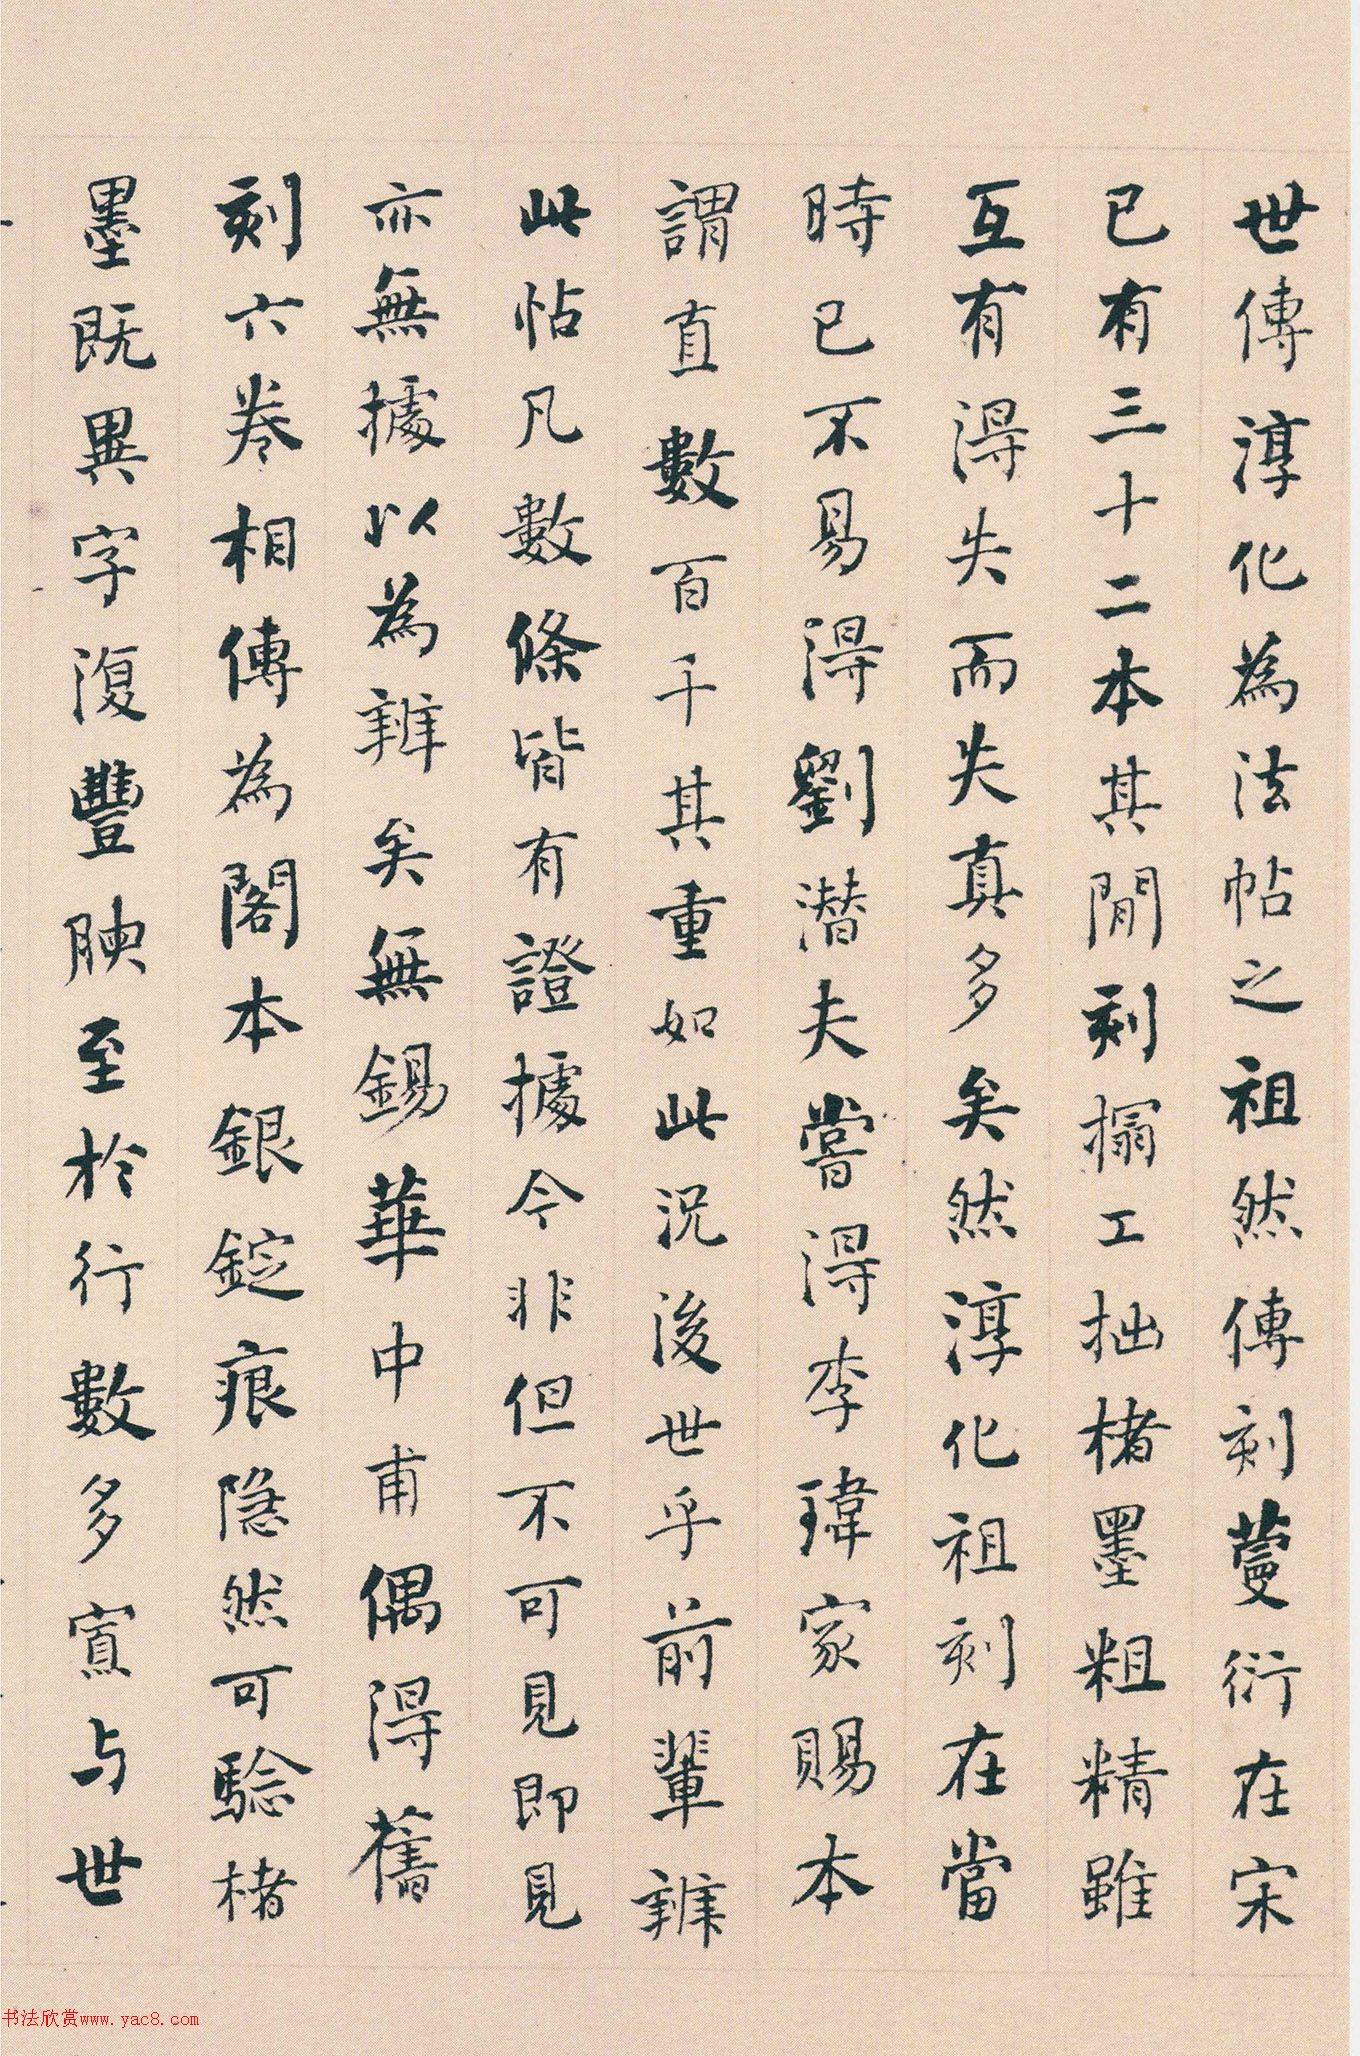 世傳淳化為法帖之祖然傳刻蔓衍在宋
已有三十二本其閒刻搨工拙楮墨粗精雖
互有得失而失真多矣然淳化祖刻在當
時已不易得劉潛夫嘗得李瑋家賜本
謂直數百千其重如此況後世乎前輩辨
此帖凡數條皆有證據今非但不可見即見
亦無據以為辨矣無錫華中甫偶得舊
刻六卷相傳為閣本銀錠痕隱然可驗楮
墨既異字復豐腴至於行數多寡与世
书法欣赏www.yac8.com